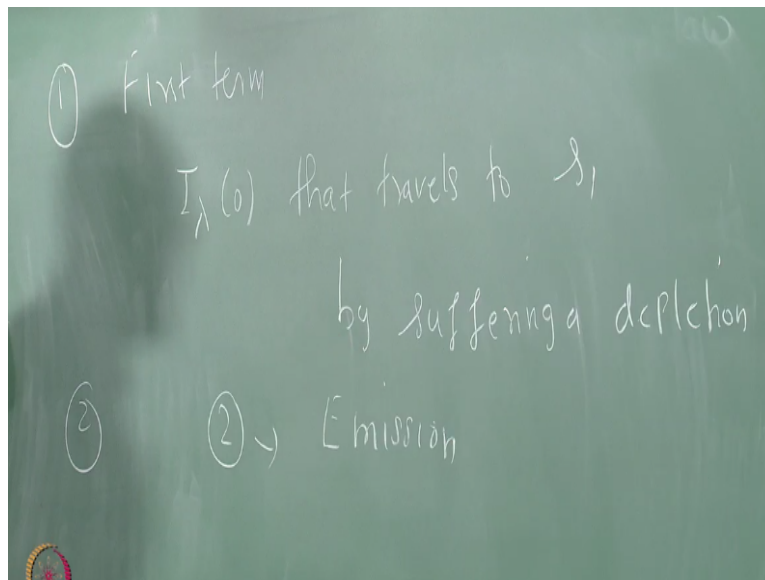 law
① First term
I_λ(0) that travels to s₁
by suffering a depletion
② ② → Emission